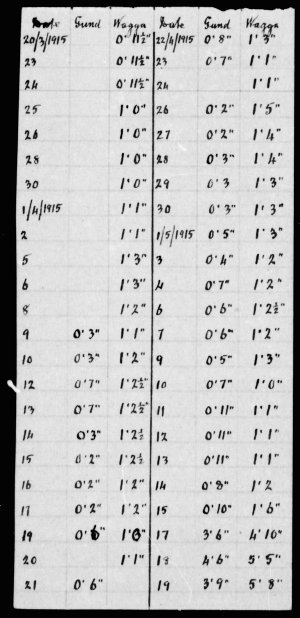 Date Gund Wagga Date Gund Wagga
20/3/1915 0' 11½" 22/4/1915 0' 8" 1' 3"
23 0' 11½" 23 0' 7" 1' 1"
24 0' 11½" 24 1' 1"
25 1' 0" 26 0' 2" 1' 5"
26 1' 0" 27 0' 2" 1' 4"
28 1' 0" 28 0' 3" 1' 4"
30 1' 0" 29 0' 3 1' 3"
1/4/1915 1' 1" 30 0' 3" 1' 3"
2 1' 1" 1/5/1915 0' 5" 1' 3"
5 1' 3" 3 0' 4" 1' 2"
6 1' 3" 4 0' 7" 1' 2"
8 1' 2" 6 0' 6" 1' 2½"
9 0' 3" 1' 1" 7 0' 6" 1' 2"
10 0' 3" 1' 2" 9 0' 5" 1' 3"
12 0' 7" 1' 2½" 10 0' 7" 1' 0"
13 0' 7" 1' 2½" 11 0' 11" 1' 1"
14 0' 3" 1' 2½ 12 0' 11" 1' 1"
15 0' 2" 1' 2½ 13 0' 11" 1' 1"
16 0' 2" 1' 2" 14 0' 8" 1' 2
17 0' 2" 1' 2" 15 0' 10" 1' 6"
19 0' 6" 1' 0" 17 3' 6" 4' 10"
20 1' 1" 18 4' 6" 5' 5"
21 0' 6" 19 3' 9" 5' 8"